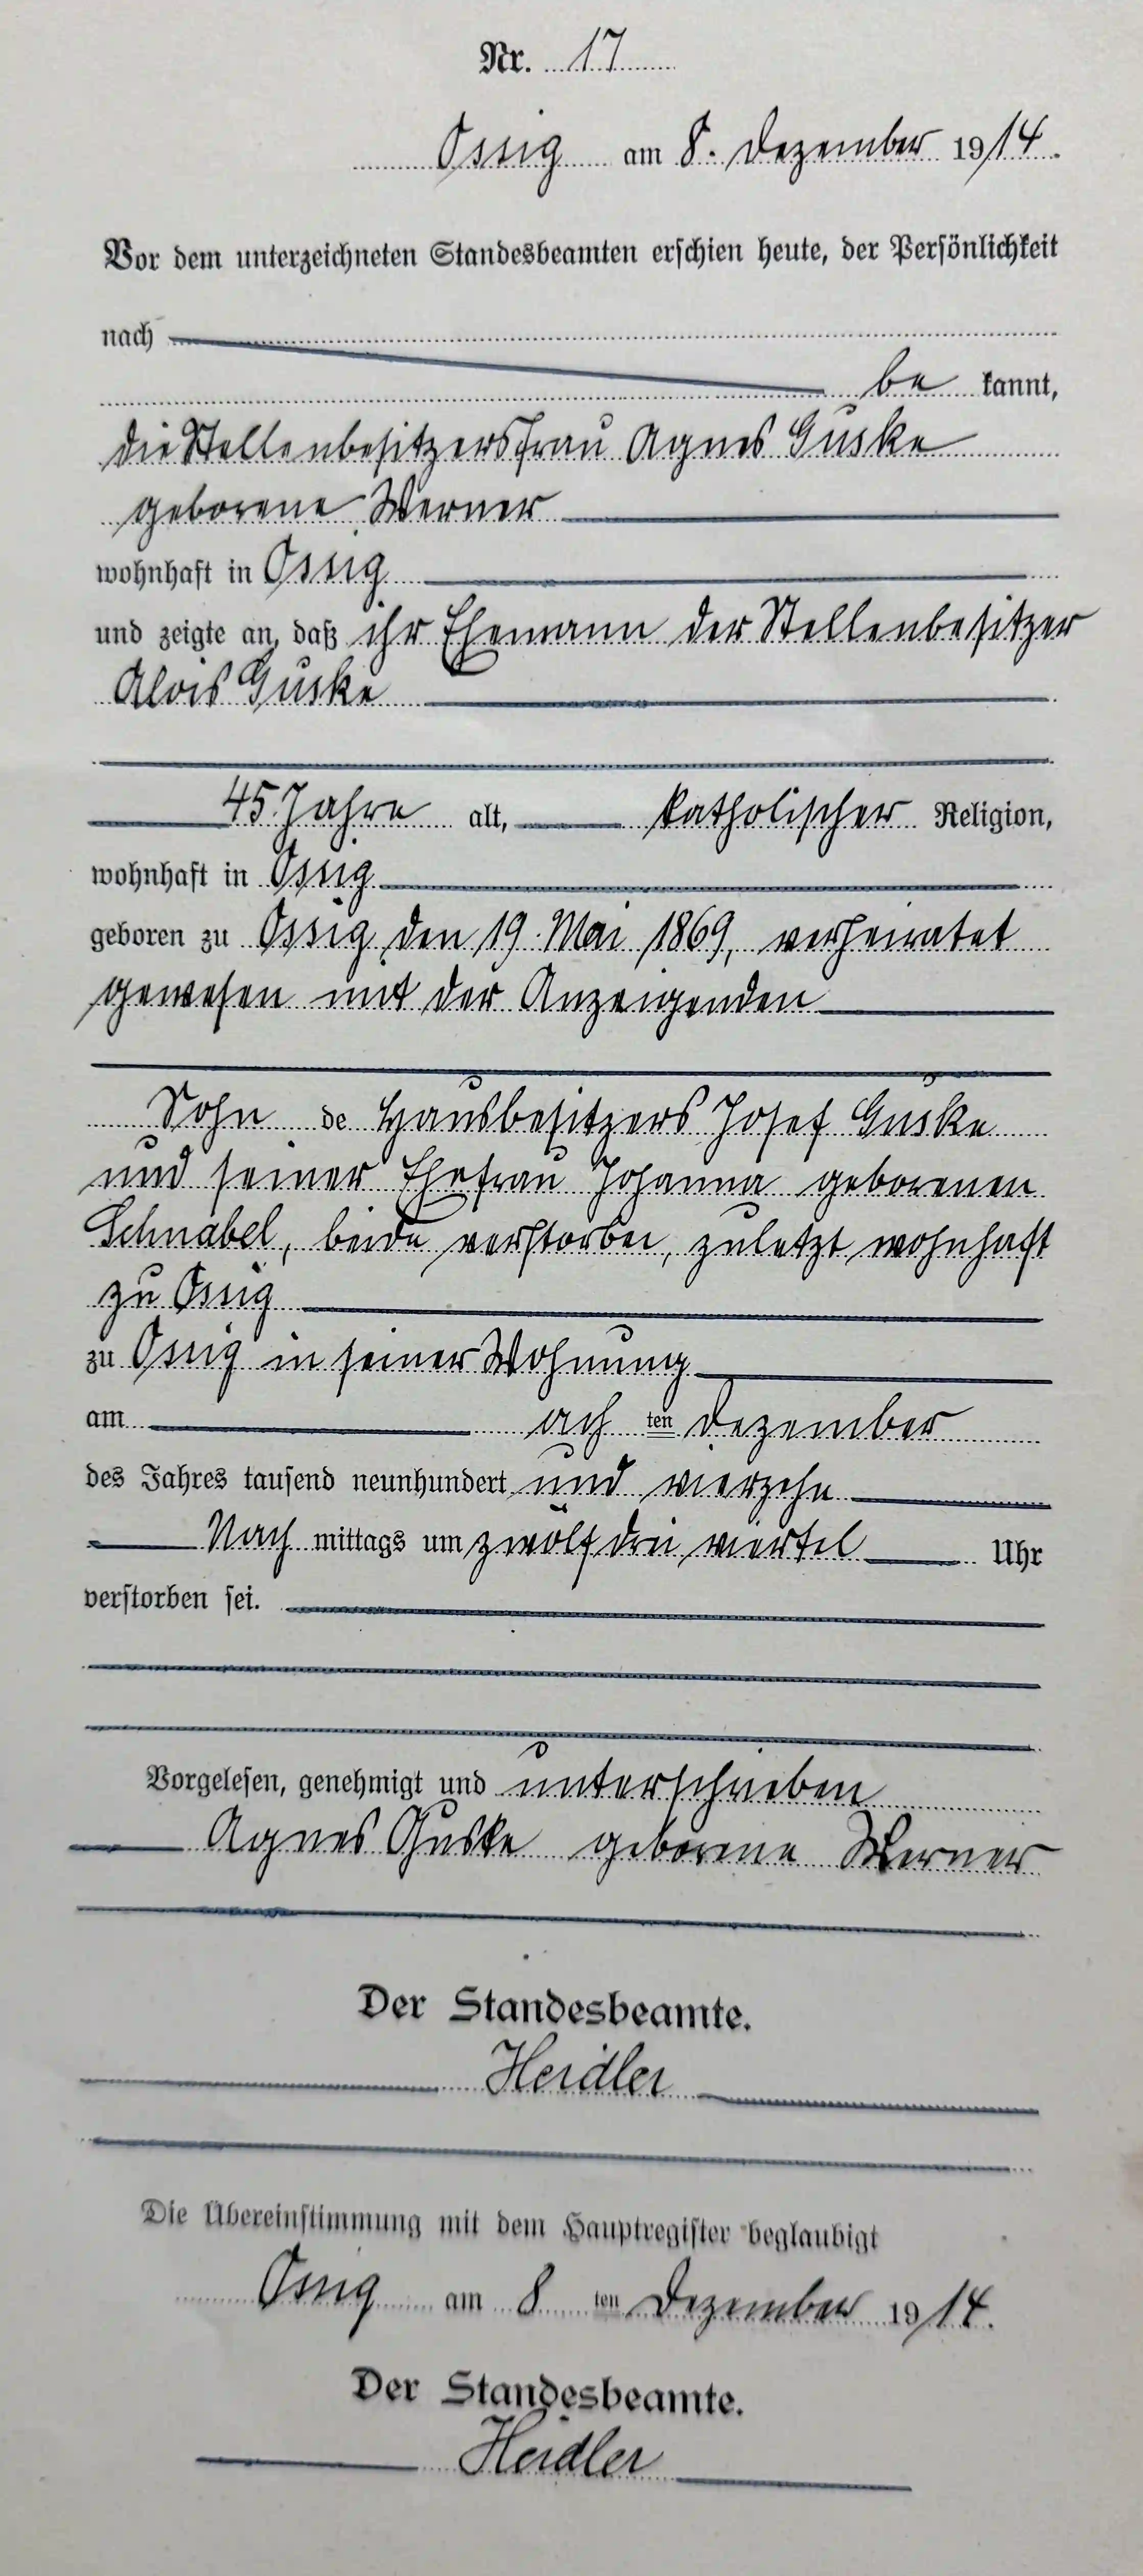 Nr. 17
Ossig am 8. Dezember 1914.
Vor dem unterzeichneten Standesbeamten erschien heute, der Persönlichkeit
nach
be kannt,
die Stellenbesitzersfrau Agnes Guske
geborene Werner
wohnhaft in Ossig
und zeigte an, daß ihr Ehemann der Stellenbesitzer
Alois Guske
45 Jahre alt, katholischer Religion,
wohnhaft in Ossig
geboren zu Ossig, den 19. Mai 1869, verheiratet
gewesen mit der Anzeigenden
Sohn de Hausbesitzers Josef Guske
und seiner Ehefrau Johanna geborenen
Schnabel, beide verstorben, zuletzt wohnhaft
zu Ossig
zu Ossig in seiner Wohnung
am ach ten Dezember
des Jahres tausend neunhundert und vierzehn
Nach mittags um zwölf drei viertel Uhr
verstorben sei.
Vorgelesen, genehmigt und unterschrieben
Agnes Guske geborene Werner
Der Standesbeamte.
Heidler
Die Übereinstimmung mit dem Hauptregister beglaubigt
Ossig am 8 ten Dezember 1914.
Der Standesbeamte.
Heidler